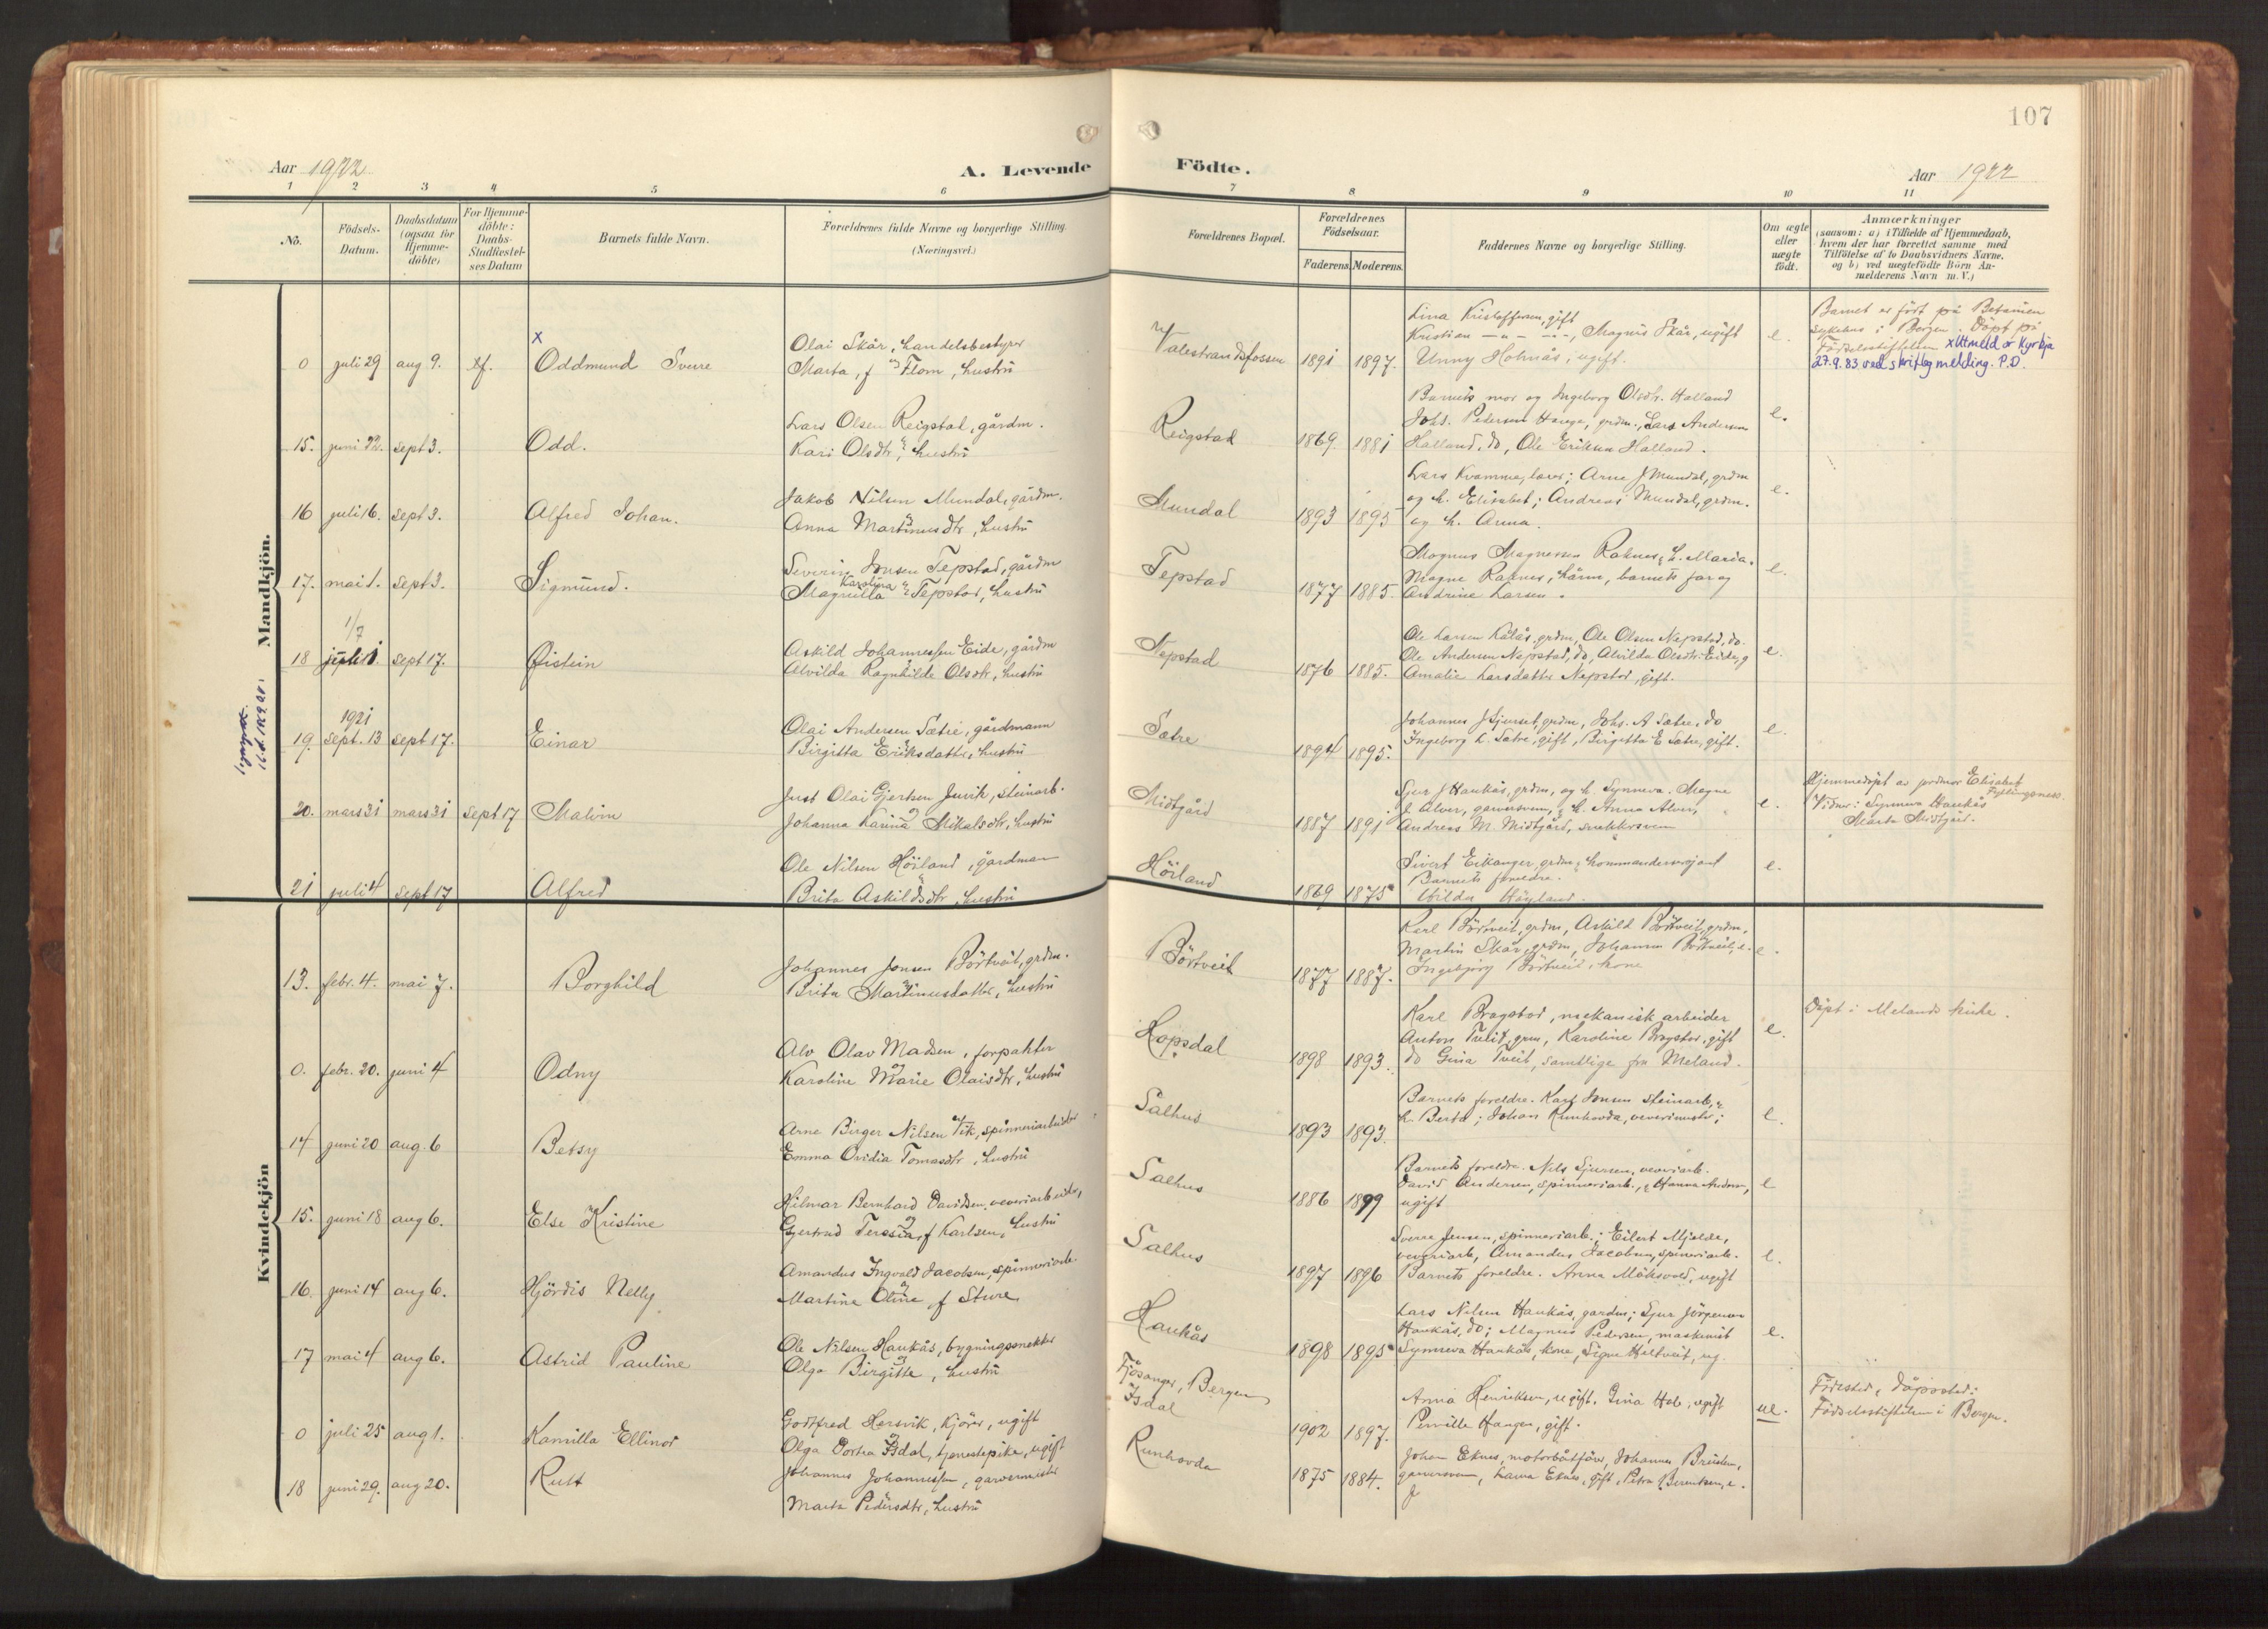 107
Aar 1922
A. Levende
Födte.
Aar 1922
1 2 3 4 5 6 7 8 9 10 11
No.
Födsels-
Datum.
Daabsdatum
(ogsaa for
Hjemme-
döbte)
For Hjemme-
döbte:
Daabs-
Stadfæstel-
ses Datum
Barnets fulde Navn.
Forældrenes fulde Navne og borgerlige Stilling
(Næringsvei.)
Forældrenes Bopæl.
Forældrenes
Födselsaar.
Faderens. Moderens.
Faddernes Navne og borgerlige Stilling.
Om ægte
eller
uægte
födt.
Anmærkninger
(saasom: a) i Tilfælde af Hjemmedaab,
hvem der har forrettet samme med
Tilföielse af to Daabsvidners Navne.
og b) ved uægtefödte Börn An-
melderens Navn m.V.)
Mandkjön.
x
0 juli 29 aug 9. Oddmund Sverre
Olai Skår, handelsbestyrer
Marta, f Flom, hustru
Valestrandsfossen 1891 1897.
Lina Kristoffersen, gift
Kristian —"— —"—, Magnus Skår, ugift
Unny Holmås, ugift.
e.
Barnet er født på Betanien
sykehus i Bergen. Døpt på
Fødselsstiftelsen x Utmeld or Kyrkja
27.9.83 ved skriftleg melding. P.D.
15. juni 22. sept 3. Odd.
Lars Olsen Reigstad, gårdm.
Kari Olsdtr, hustru
Reigstad 1869 1881
Barnets mor og Ingeborg Olsdtr. Halland
Johs. Pedersen Hauge, grdm., Lars Andersen
Halland, do, Ole Eriksen Halland.
e.
16 juli 16. sept 3. Alfred Johan.
Jakob Nilsen Mundal, gårdm.
Anna Martinusdtr, hustru
Mundal 1893 1895
Lars Kvamme, lærer; Arne J Mundal, grdm
og h. Elisabet; Andreas Mundal, grdm.
og h. Anna.
e.
17. mai 1. sept 3. Sigmund.
Severin Jonsen Tepstad, gårdm
Karolina
Magnilla Tepstad, hustru
Tepstad 1877 1885.
Magnus Magnersen Raknes, h. Maria.
Magne Raknes, barnets far og
Andrine Larsen.
e.
1/7
18 sept 17. Øistein
Askild Johannessen Eide, gårdm
Alvilda Ragnhilde Olsdtr, hustru
Nepstad 1876 1885.
Ole Larsen Kålås, grdm, Ole Olsen Nepstad, do.
Ole Andersen Nepstad, do, Alvilda Olsdtr. Eide, g
Amalie Larsdatter Nepstad, gift.
e.
1921
19. sept. 13 sept 17. Einar
Olai Andersen Sætre, gårdmann
Birgitta Eriksdatter, hustru
Sætre 1894 1895.
Johannes J Gjerset, grdm, Johs. A Sætre, do
Ingeborg L. Sætre, gift, Birgitta E Sætre, gift.
e.
20. mars 31 mars 31 sept 17 Malvin
Just Olai Gjertsen Juvik, steinarb.
Johanna Karina Mikalsdtr, hustru
Midtgård 1887 1891
Sjur J Haukås, grdm, og h Synneva. Magne
J. Alver, garversvenn, & h. Anna Alver,
Andreas M. Midtgård, snekkersvenn
e.
Hjemmedøpt av jordmor Elisabet
Fyllingsnes.
Vidner: Synneva Haukås
Marta Midtgård.
21 juli 4 sept 17 Alfred
Ole Nilsen Höiland, gårdman
Brita Askildsdtr, hustru
Höiland 1869 1875
Sivert Eikanger, grdm, & kommandersersjant
Barnets foreldre.
Hilda Höyland.
e.
Kvindekjön
13. febr. 4. mai 7. Borghild
Johannes Jonsen Börtveit, grdm.
Brita Martinusdatter, hustru
Börtveit 1877 1887.
Karl Börtveit, grdm, Askild Börtveit, grdm,
Martin Skår, grdm, Johanna Börtveit, e.
Ingebjørg Börtveit, kone
e.
0. febr. 20. juni 4 Odny
Alv Olav Madsen, forpakter
Karoline Marie Olaisdtr, hustru
Hopsdal 1898 1893.
Karl Brogstad, mekanisk arbeider
Anton Tveit, grm, Karoline Brogstad, gift
do Gina Tveit, samtlige fra Meland.
e.
Døpt i Melands kirke.
14 juni 20 aug. 6 Betsy
Arne Birger Nilsen Vik, spinneriarbeider
Emma Ovidia Tomasdtr, hustru
Salhus 1893 1893.
Barnets foreldre. Karl Jonsen steinarb, &
h. Berta; Johan Runhovda, vevermester;
e.
15. juni 18 aug 6. Else Kristine
Hilmar Bernhard Davidsen, veveriarbeider,
Gjertrud Teresia, f Karlsen, hustru
Salhus 1886 1899
Barnets foreldre. Nils Sjursen, veveriarb.
David Andersen, spinneriarb., & Hanna Andersen,
ugift
e
16. juni 14 aug 6. Hjördis Nelly
Amandus Ingvald Jacobsen, spinneriarb.
Martine Oline, f Sture
Salhus 1897 1896
Sverre Jensen, spinneriarb.; Eilert Mjelde,
veveriarb, Amandus Jacobsen, spinneriarb.
Barnets foreldre. Anna Möksvold, ugift
e.
17 mai 4 aug 6. Astrid Pauline
Ole Nilsen Haukås, bygningssnekker
Olga Birgitte, hustru
Haukås 1898 1895
Lars Nilsen Haukås, gardm; Sjur Jörgensen
Haukås, do; Magnus Pedersen, maskinist
Synneva Haukås, kone, Signe Hiltveit, ug.
e.
0 juli 25 aug 1. Kamilla Ellinor
Godtfred Hersvik, kjörer, ugift
Olga Dortea Isdal, tjenestepike, ugift
Fjösanger, Bergen
Isdal
1902 1897.
Anna Henriksen, ugift. Gina Hole, ugift
Pernille Haugen, gift.
ue.
Födested, döpested:
Födselsstiftelsen i Bergen.
18 juni 29. aug 20. Rutt
Johannes Johannessen, garvermester
Marta Pedersdtr, hustru
Runhovda 1875 1884.
Johan Eknes, motorbåtförer, Johannes Breistein,
garversvenn, Laura Eknes, gift, Petra Berntsen, e.